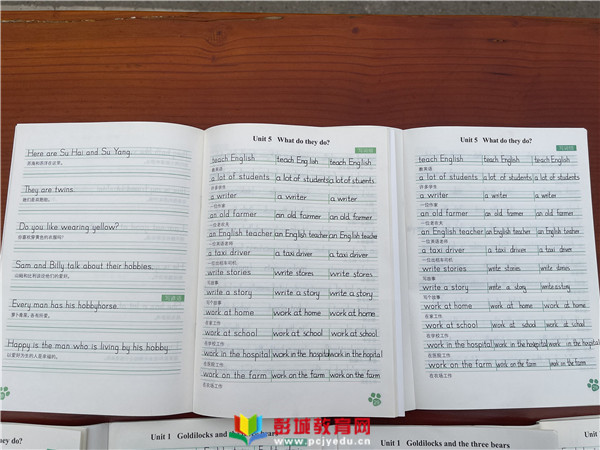 Here are Su Hai and Su Yang.
They are twins.
Do you like wearing yellow?
Sam and Billy talk about their hobbies.
Every man has his hobbyhorse.
Happy is the man who is living by his hobby.
Unit 5 What do they do?
teach English teach English teach English
教英语
a lot of students a lot of students a lot of students
许多学生
a writer a writer a writer
一位作家
an old farmer an old farmer an old farmer
一位老农夫
an English teacher an English teacher an English teacher
一位英语老师
a taxi driver a taxi driver a taxi driver
一位出租车司机
write stories write stores write stories
写故事
write a story write a story write a story
写个故事
work at home work at home work at home
在家工作
work at school work at school work at school
在学校工作
work in the hospital work in the hospital work in the hospital
在医院工作
work on the farm work on the farm work on the farm
在农场工作
Unit 5 What do they do?
teach English teach English teach English
教英语
a lot of students a lot of students a lot of students
许多学生
a writer a writer a writer
一位作家
an old farmer an old farmer an old farmer
一位老农夫
an English teacher an English teacher an English teacher
一位英语老师
a taxi driver a taxi driver a taxi driver
一位出租车司机
write stories write stories write stories
写故事
write a story write a story write a story
写个故事
work at home work at home work at home
在家工作
work at school work at school work at school
在学校工作
work in the hospital work in the hospital work in the hospital
在医院工作
work on the farm work on the farm work on the farm
在农场工作
they do?
Unit 1 Goldilocks and the bears
Unit 1 Goldilocks and the three bears
彭城教育网
www.pcjyedu.cn